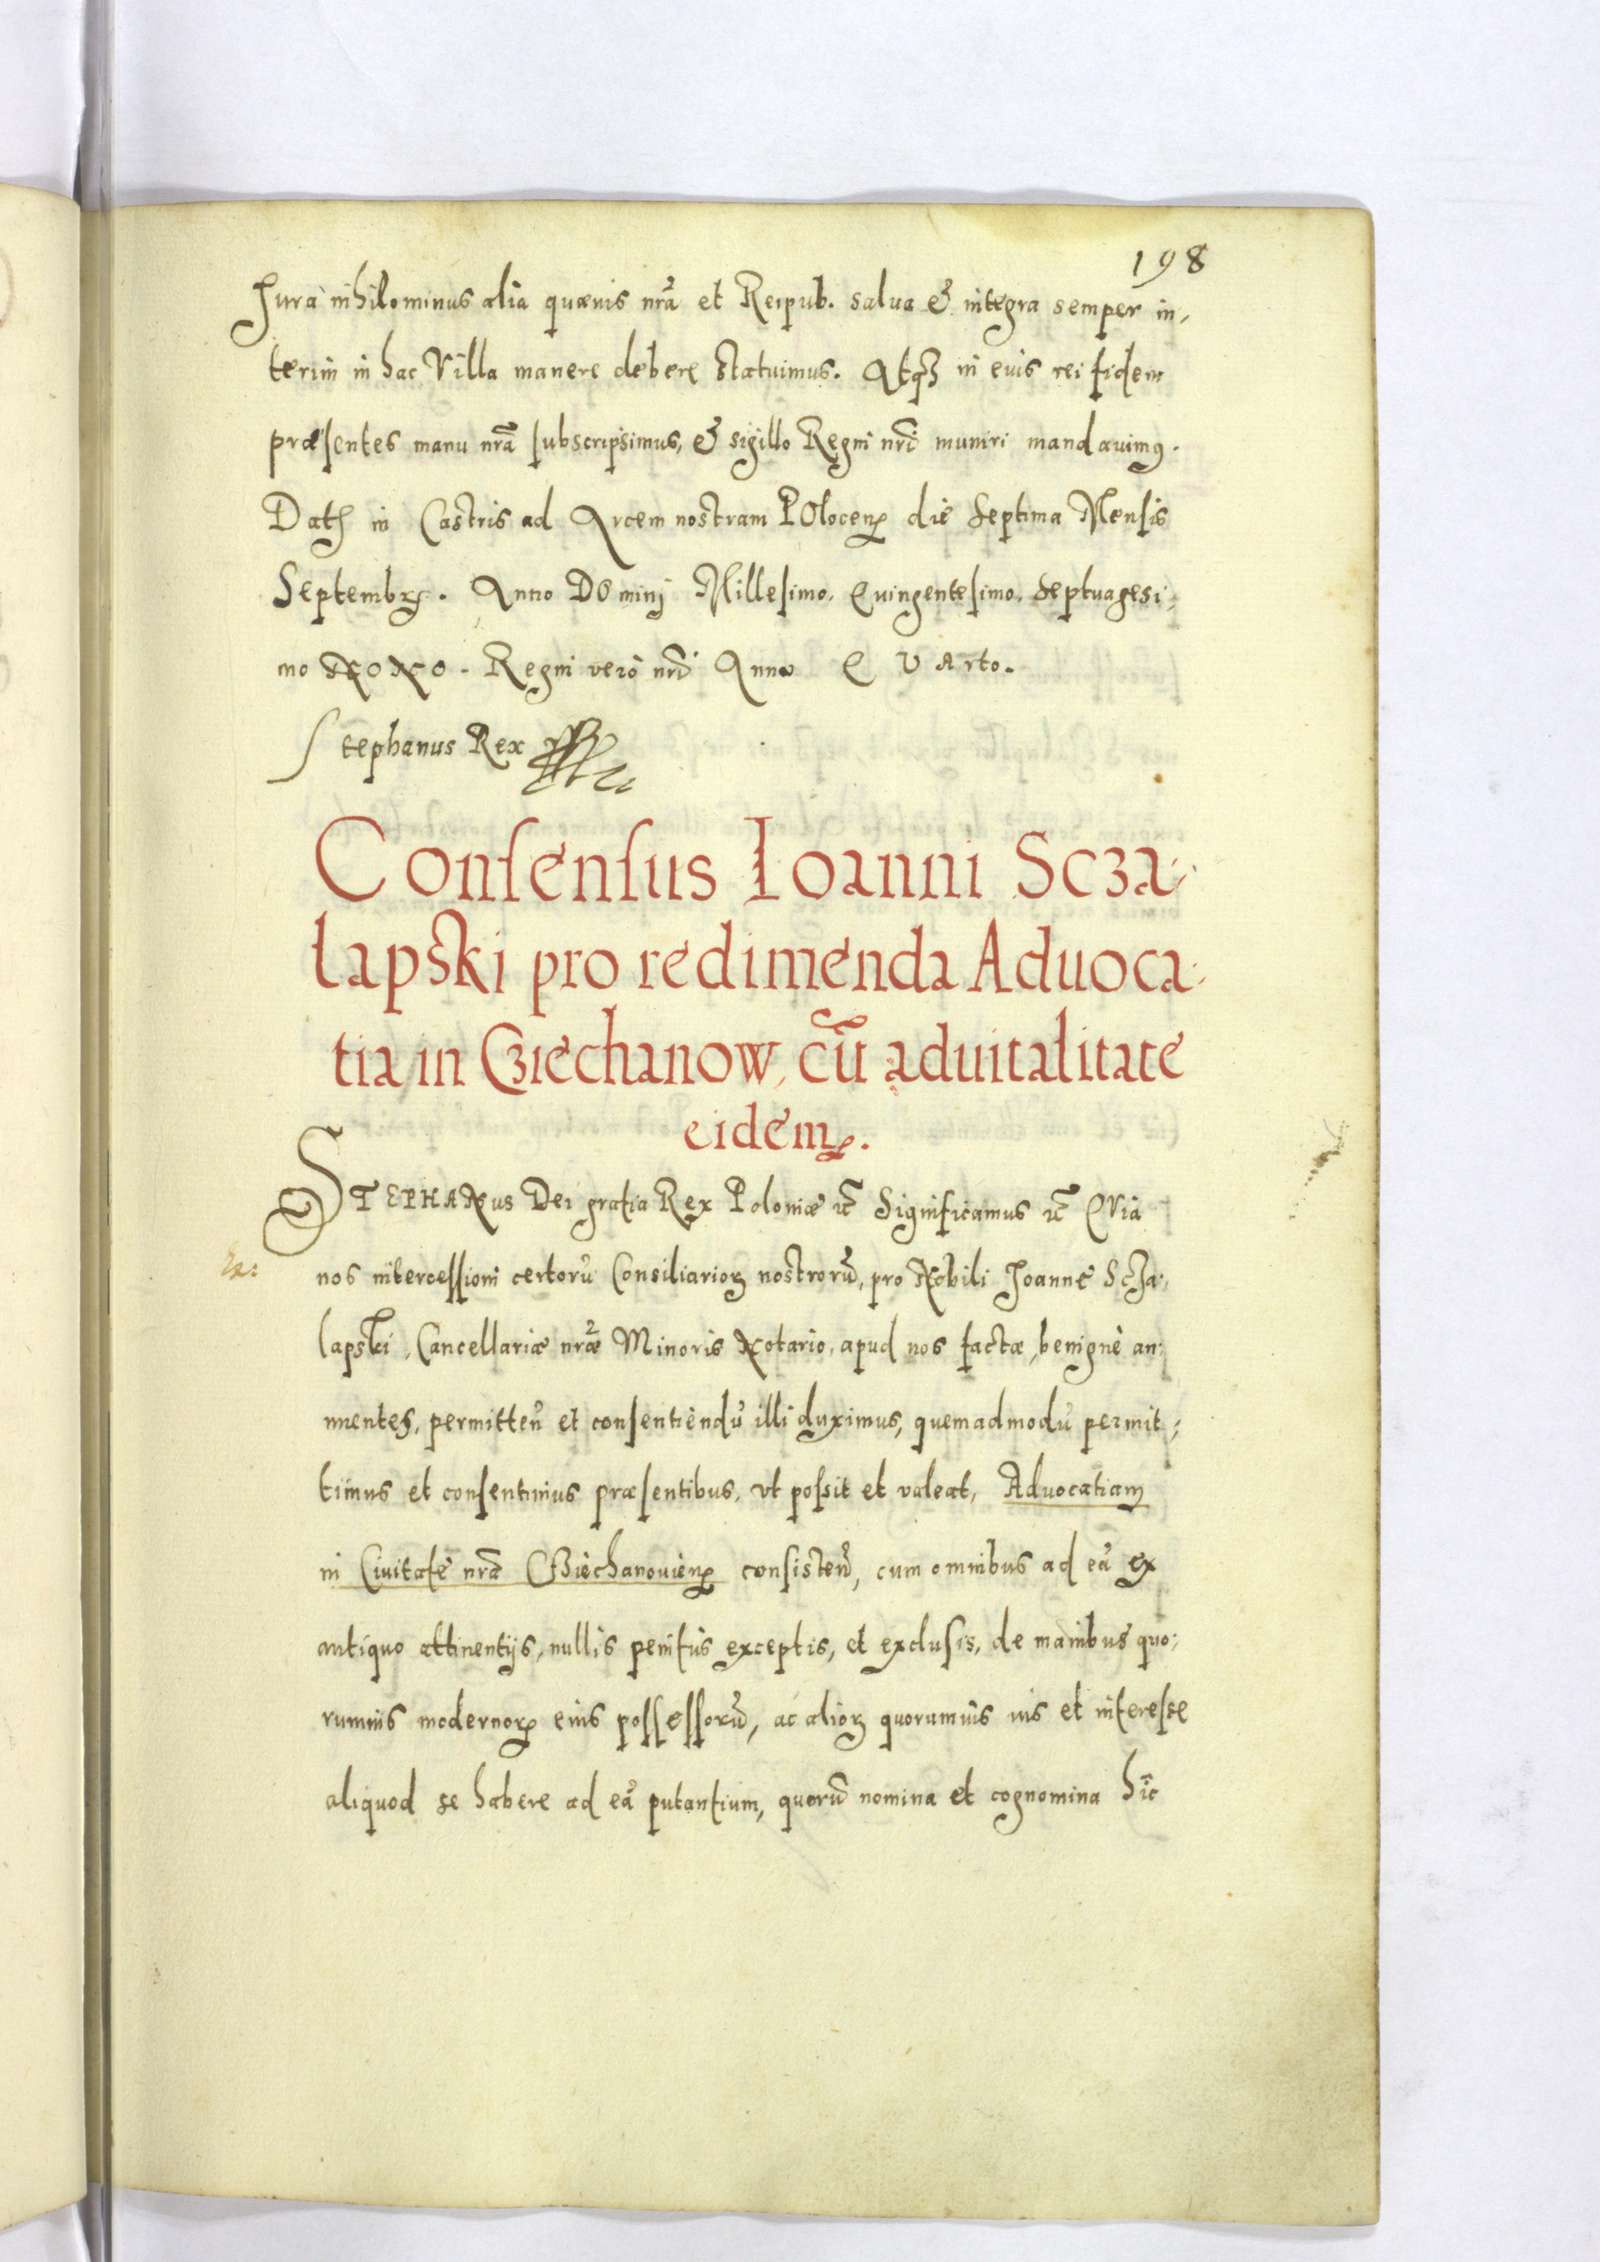 198
Jura nihilominus alia quævis nrã et Reipub. salua & integra semper in,
terim in hac Villa manere debere statuimus. Atq3 in euis rei fidem
præsentes manu nrã subscripsimus, & sigillo Regni nri̅ muniri mandauimꝰ.
Datꝭ in Castris ad Arcem nostram POlocenꝭ die septima Mensis
Septembrꝭ. Anno DOminj Millesimo. Quingentesimo. septuagesi,
mo NONO. Regni verò nri̅ Anno QVArto.
Stephanus Rex
Consensus Ioanni Scza,
lapski pro redimenda Aduoca,
tia in Cziechanow, cu̅ aduitalitate
eidemꝭ.
STEPHANus Dei gratia Rex Poloniæ ꝛc̃ Significamus ꝛc̃ QVia
nos intercessioni certoru̅ Consiliarioꝝ nostroru̅, pro Nobili Joanne Scza,
lapski, Cancellariæ nræ̃ Minoris Notario, apud nos factæ, benignè an,
nuentes, permitten̅ et consentiendu̅ illi duximus, quemadmodu̅ permit,
timus et consentimus præsentibus, vt possit et valeat, Aduocatiam
in Ciuitate nrã Cziechanouienꝭ consisten̅, cum omnibus ad eã ex
antiquo attinentijs, nullis penitùs exceptis, et exclusis, de manibus quo,
rumuis modernorꝭ eius possessoru̅, ac alioꝝ quorumuis ius et interesse
aliquod se habere ad eã putantium, quoru̅ nomina et cognomina hic̃